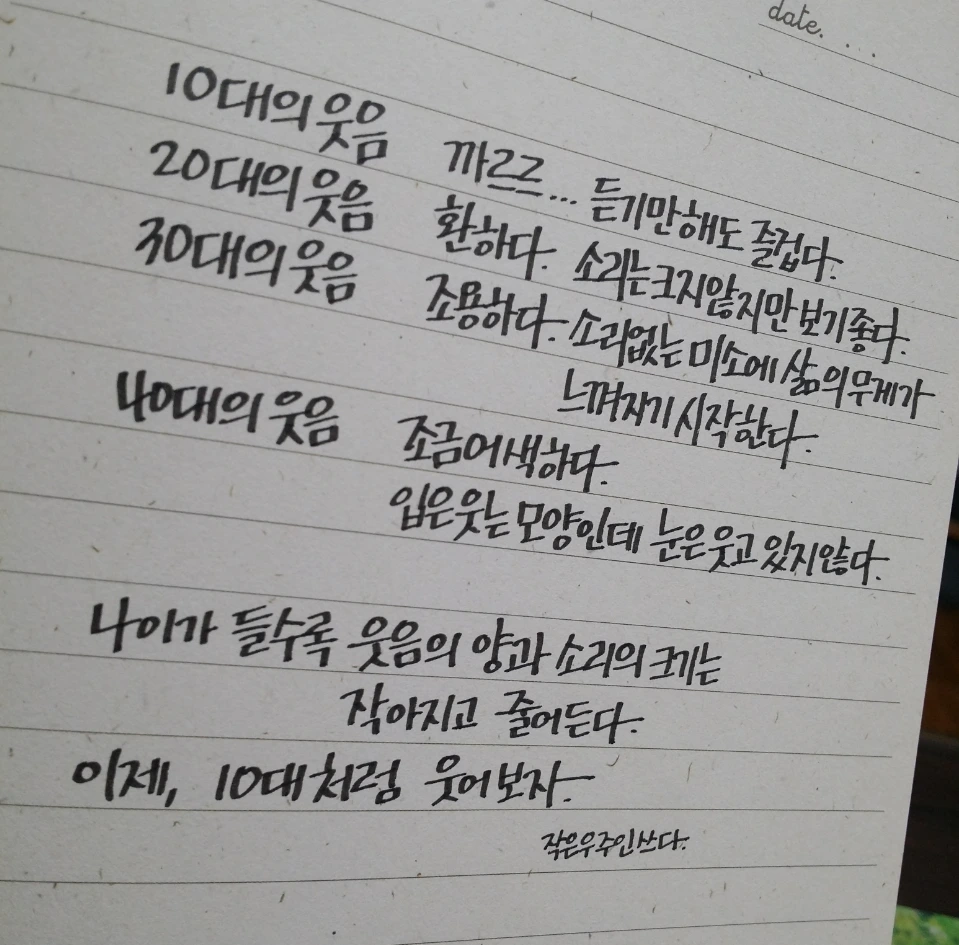 date. . . .
10대의 웃음 까르르... 듣기만해도 즐겁다.
20대의 웃음 환하다. 소리는크지않지만 보기좋다.
30대의 웃음 조용하다. 소리없는 미소에 삶의무게가
느껴지기 시작한다.
40대의 웃음 조금어색하다.
입은웃는 모양인데 눈은웃고 있지않다.
나이가 들수록 웃음의 양과 소리의 크기는
작아지고 줄어든다.
이제, 10대처럼 웃어보자.
작은우주인쓰다.